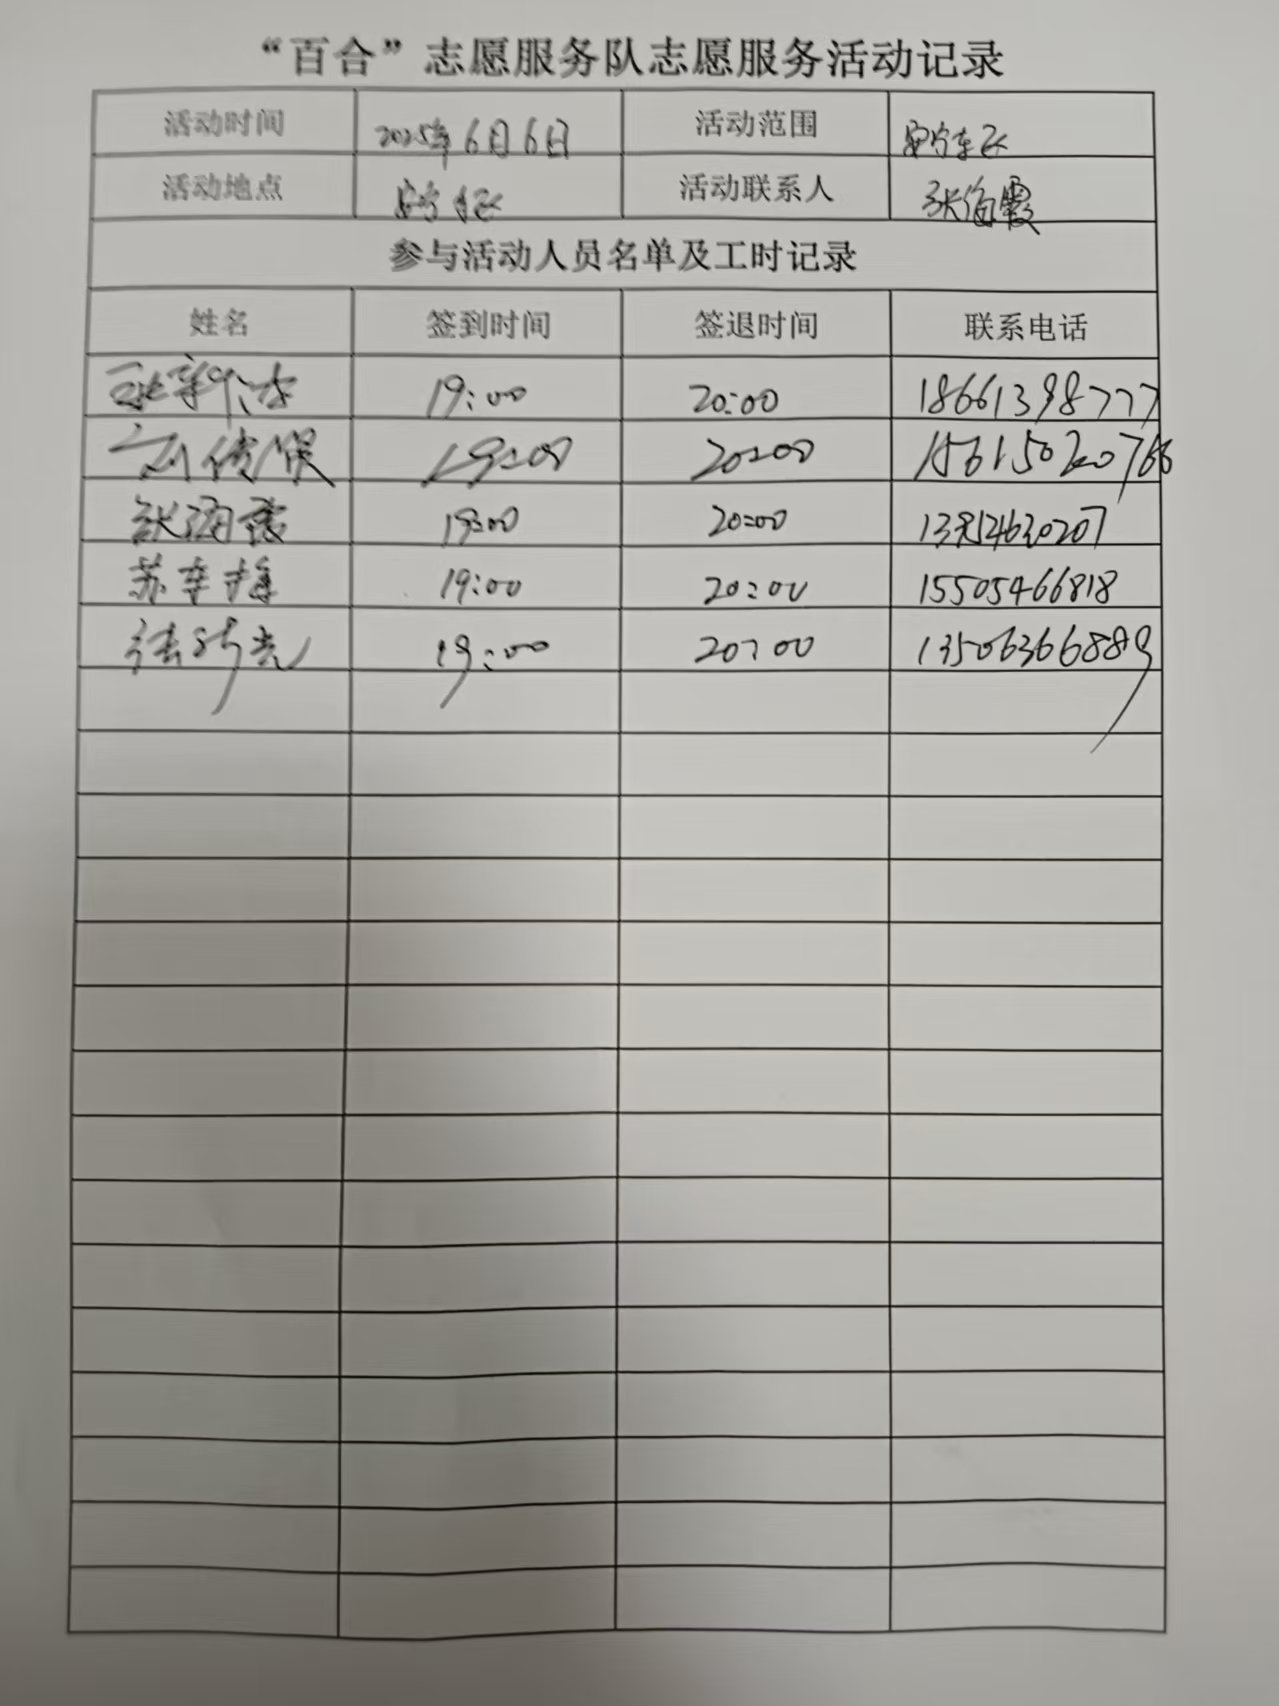 “百合”志愿服务队志愿服务活动记录
活动时间 2025年6月6日 活动范围
活动地点 活动联系人 张海霞
参与活动人员名单及工时记录
姓名 签到时间 签退时间 联系电话
19:00 20:00 18661398777
19:00 20:00 15615020766
张海霞 19:00 20:00
苏幸梅 19:00 20:00 15505466818
19:00 20:00 13506366889